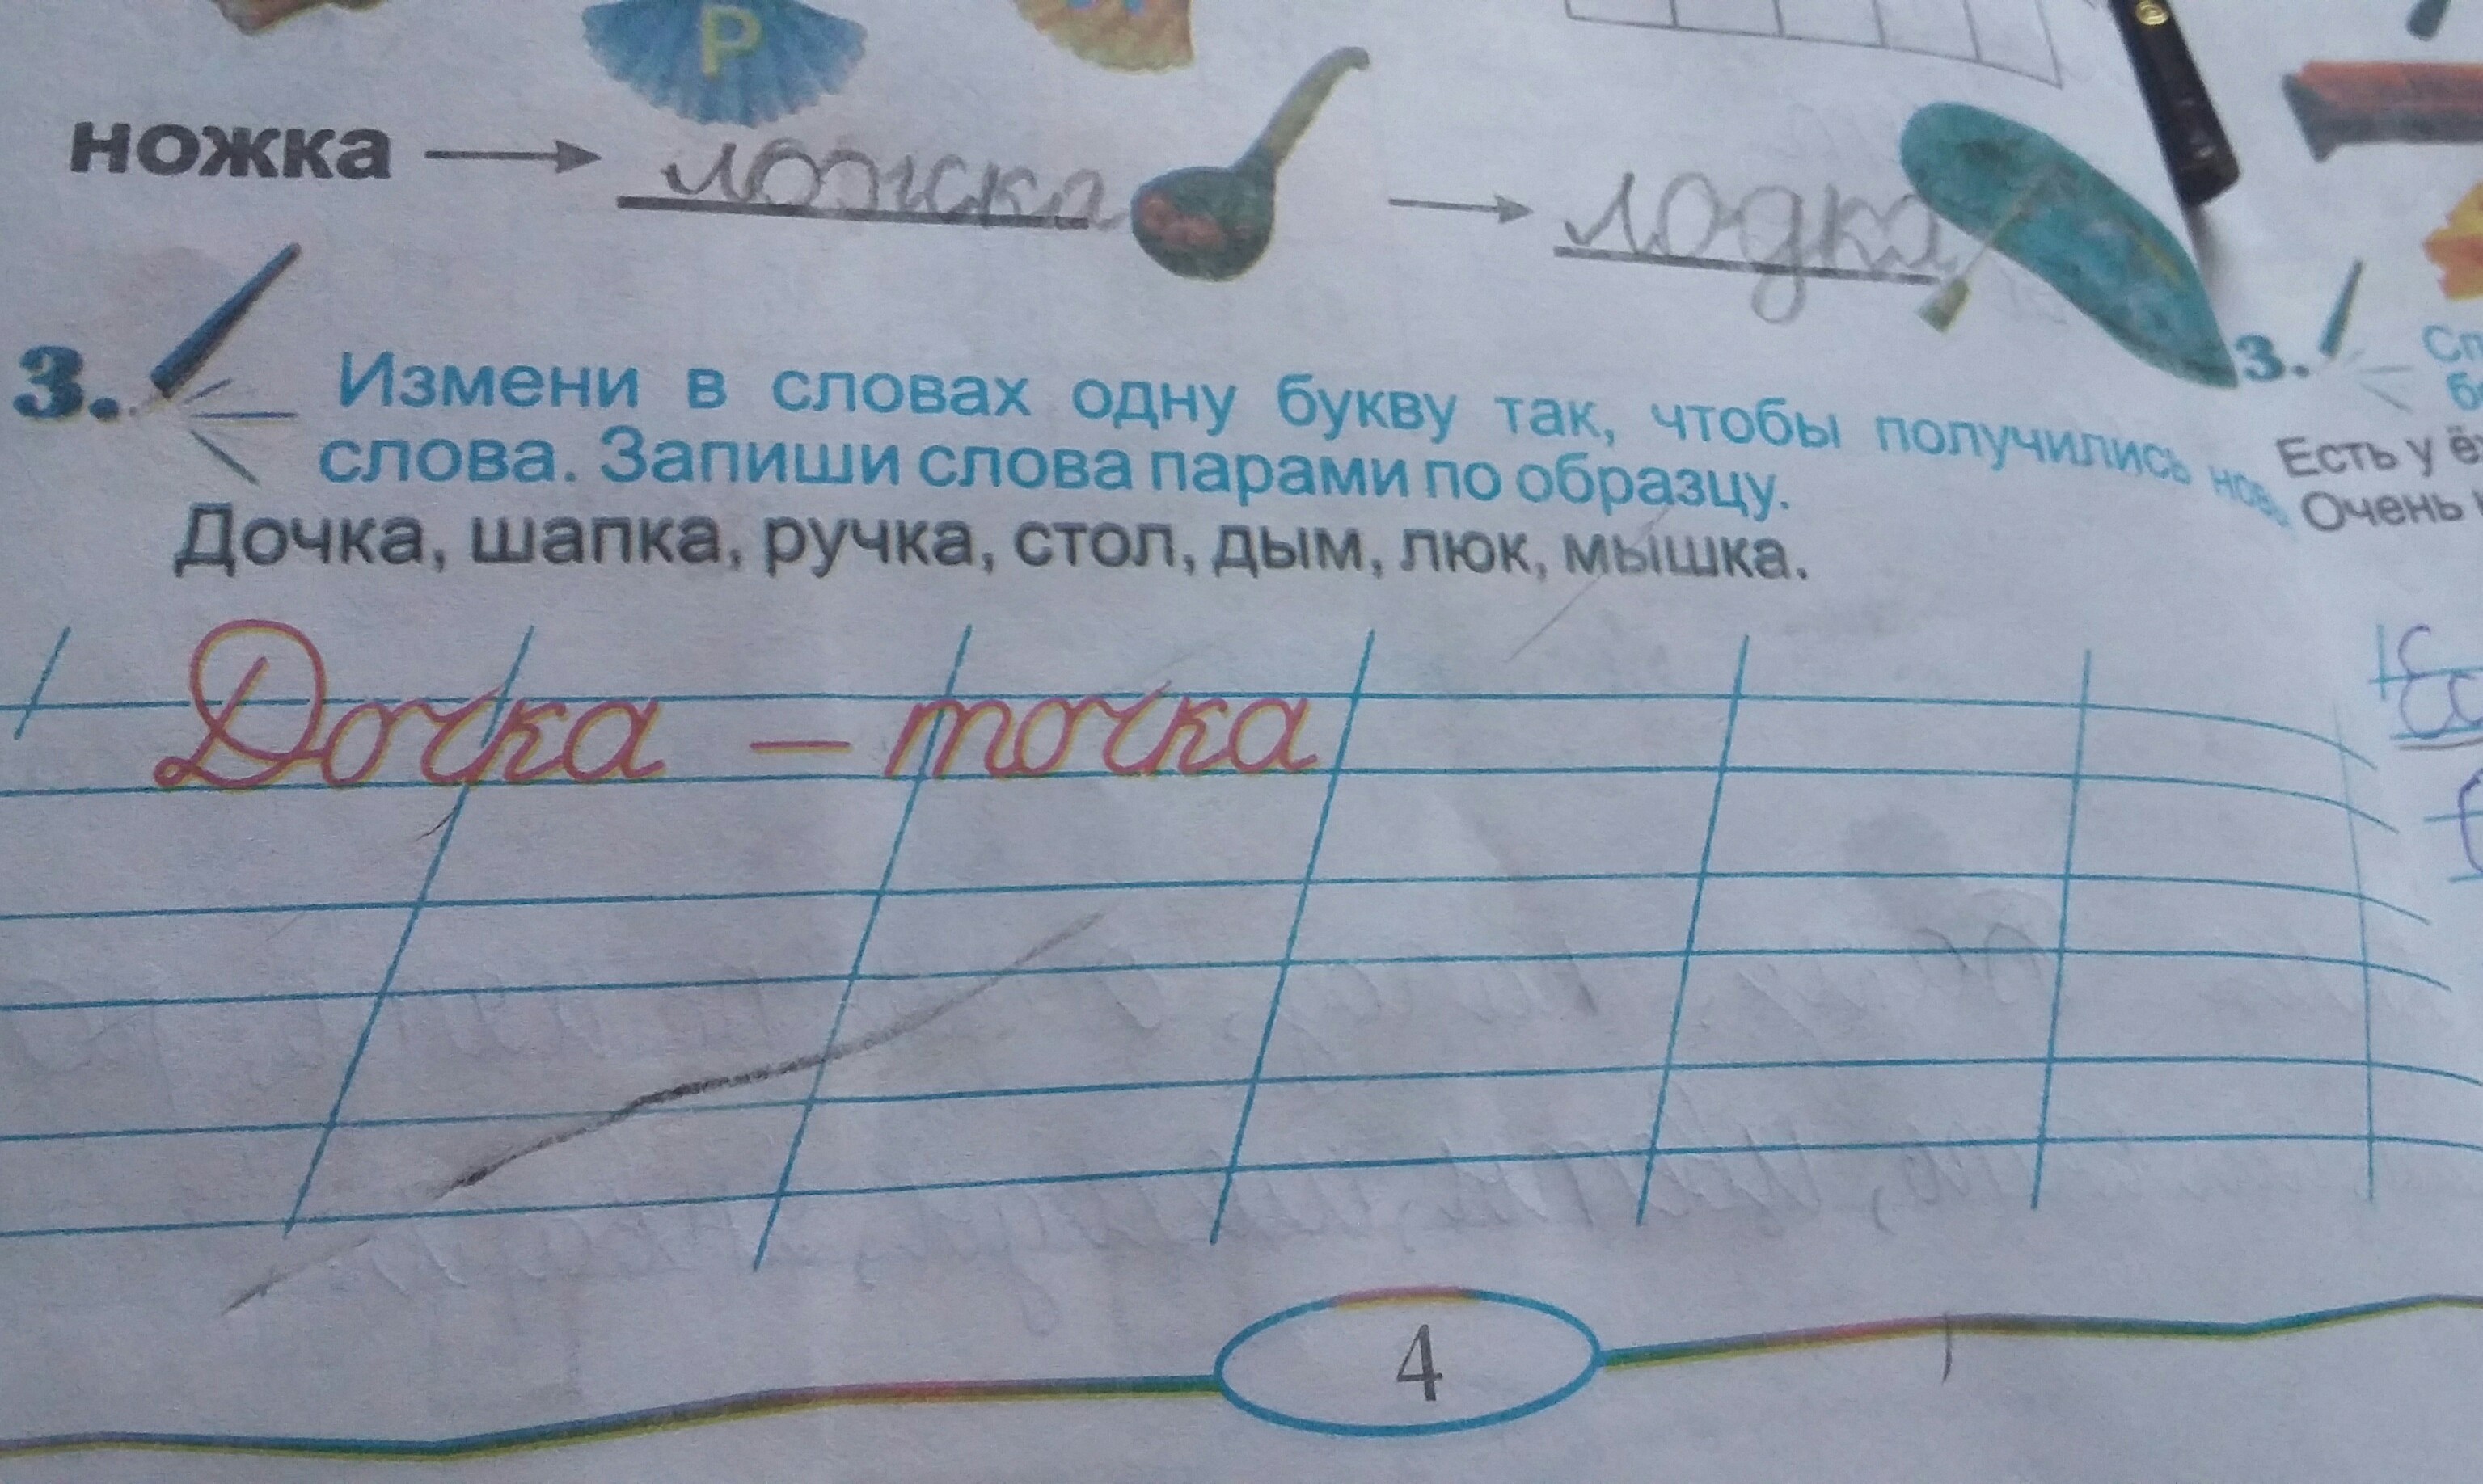 Р
ножка ложка лодка
3. Измени в словах одну букву так, чтобы получились
слова. Запиши слова парами по образцу.
Дочка, шапка, ручка, стол, дым, люк, мышка.
Дочка – точка
4
3.
Есть у
Очень